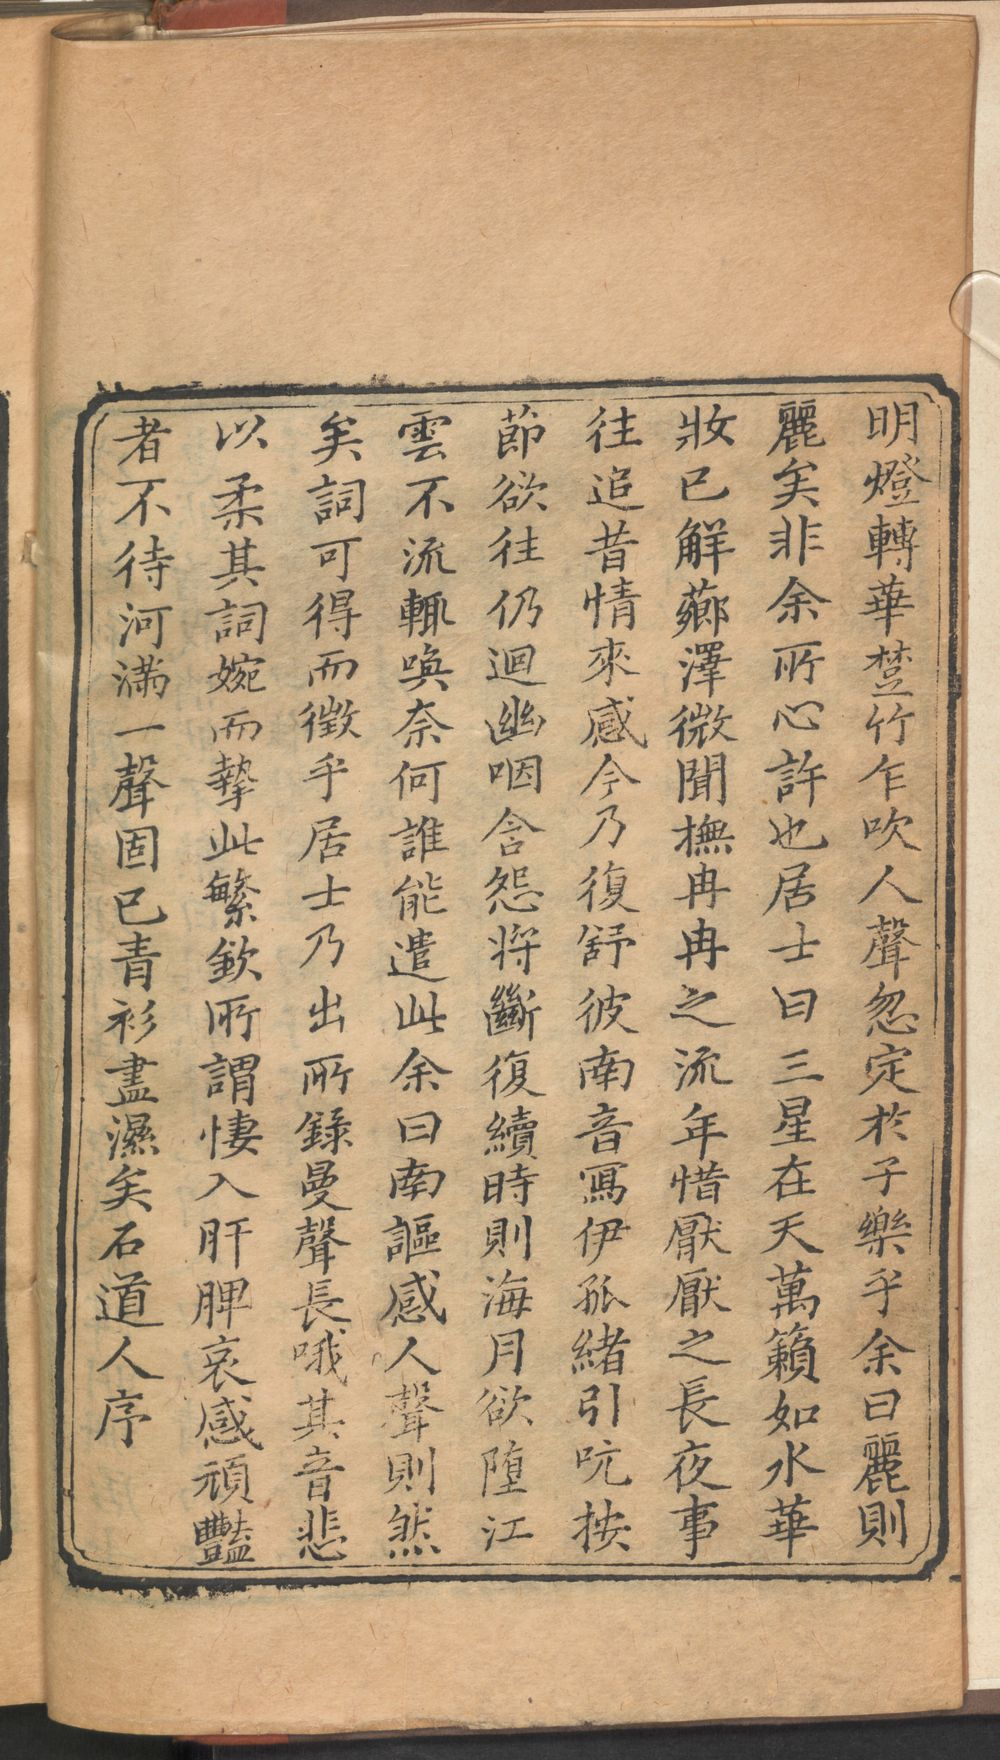 明燈轉華椘竹乍吹人聲忽定於子樂乎余曰麗則
麗矣非余所心許也居士曰三星在天萬籟如水華
妝已解薌澤微聞撫冉冉之流年惜厭厭之長夜事
往追昔情來感今乃復舒彼南音寫伊孤緒引吭按
節欲往仍迴幽咽含怨將斷復續時則海月欲墮江
雲不流輒喚奈何誰能遣此余曰南謳感人聲則然
矣詞可得而徵乎居士乃出所錄曼聲長哦其音悲
以柔其詞婉而摯此繁欽所謂悽入肝脾哀感頑豔
者不待河滿一聲固已青衫盡濕矣石道人序